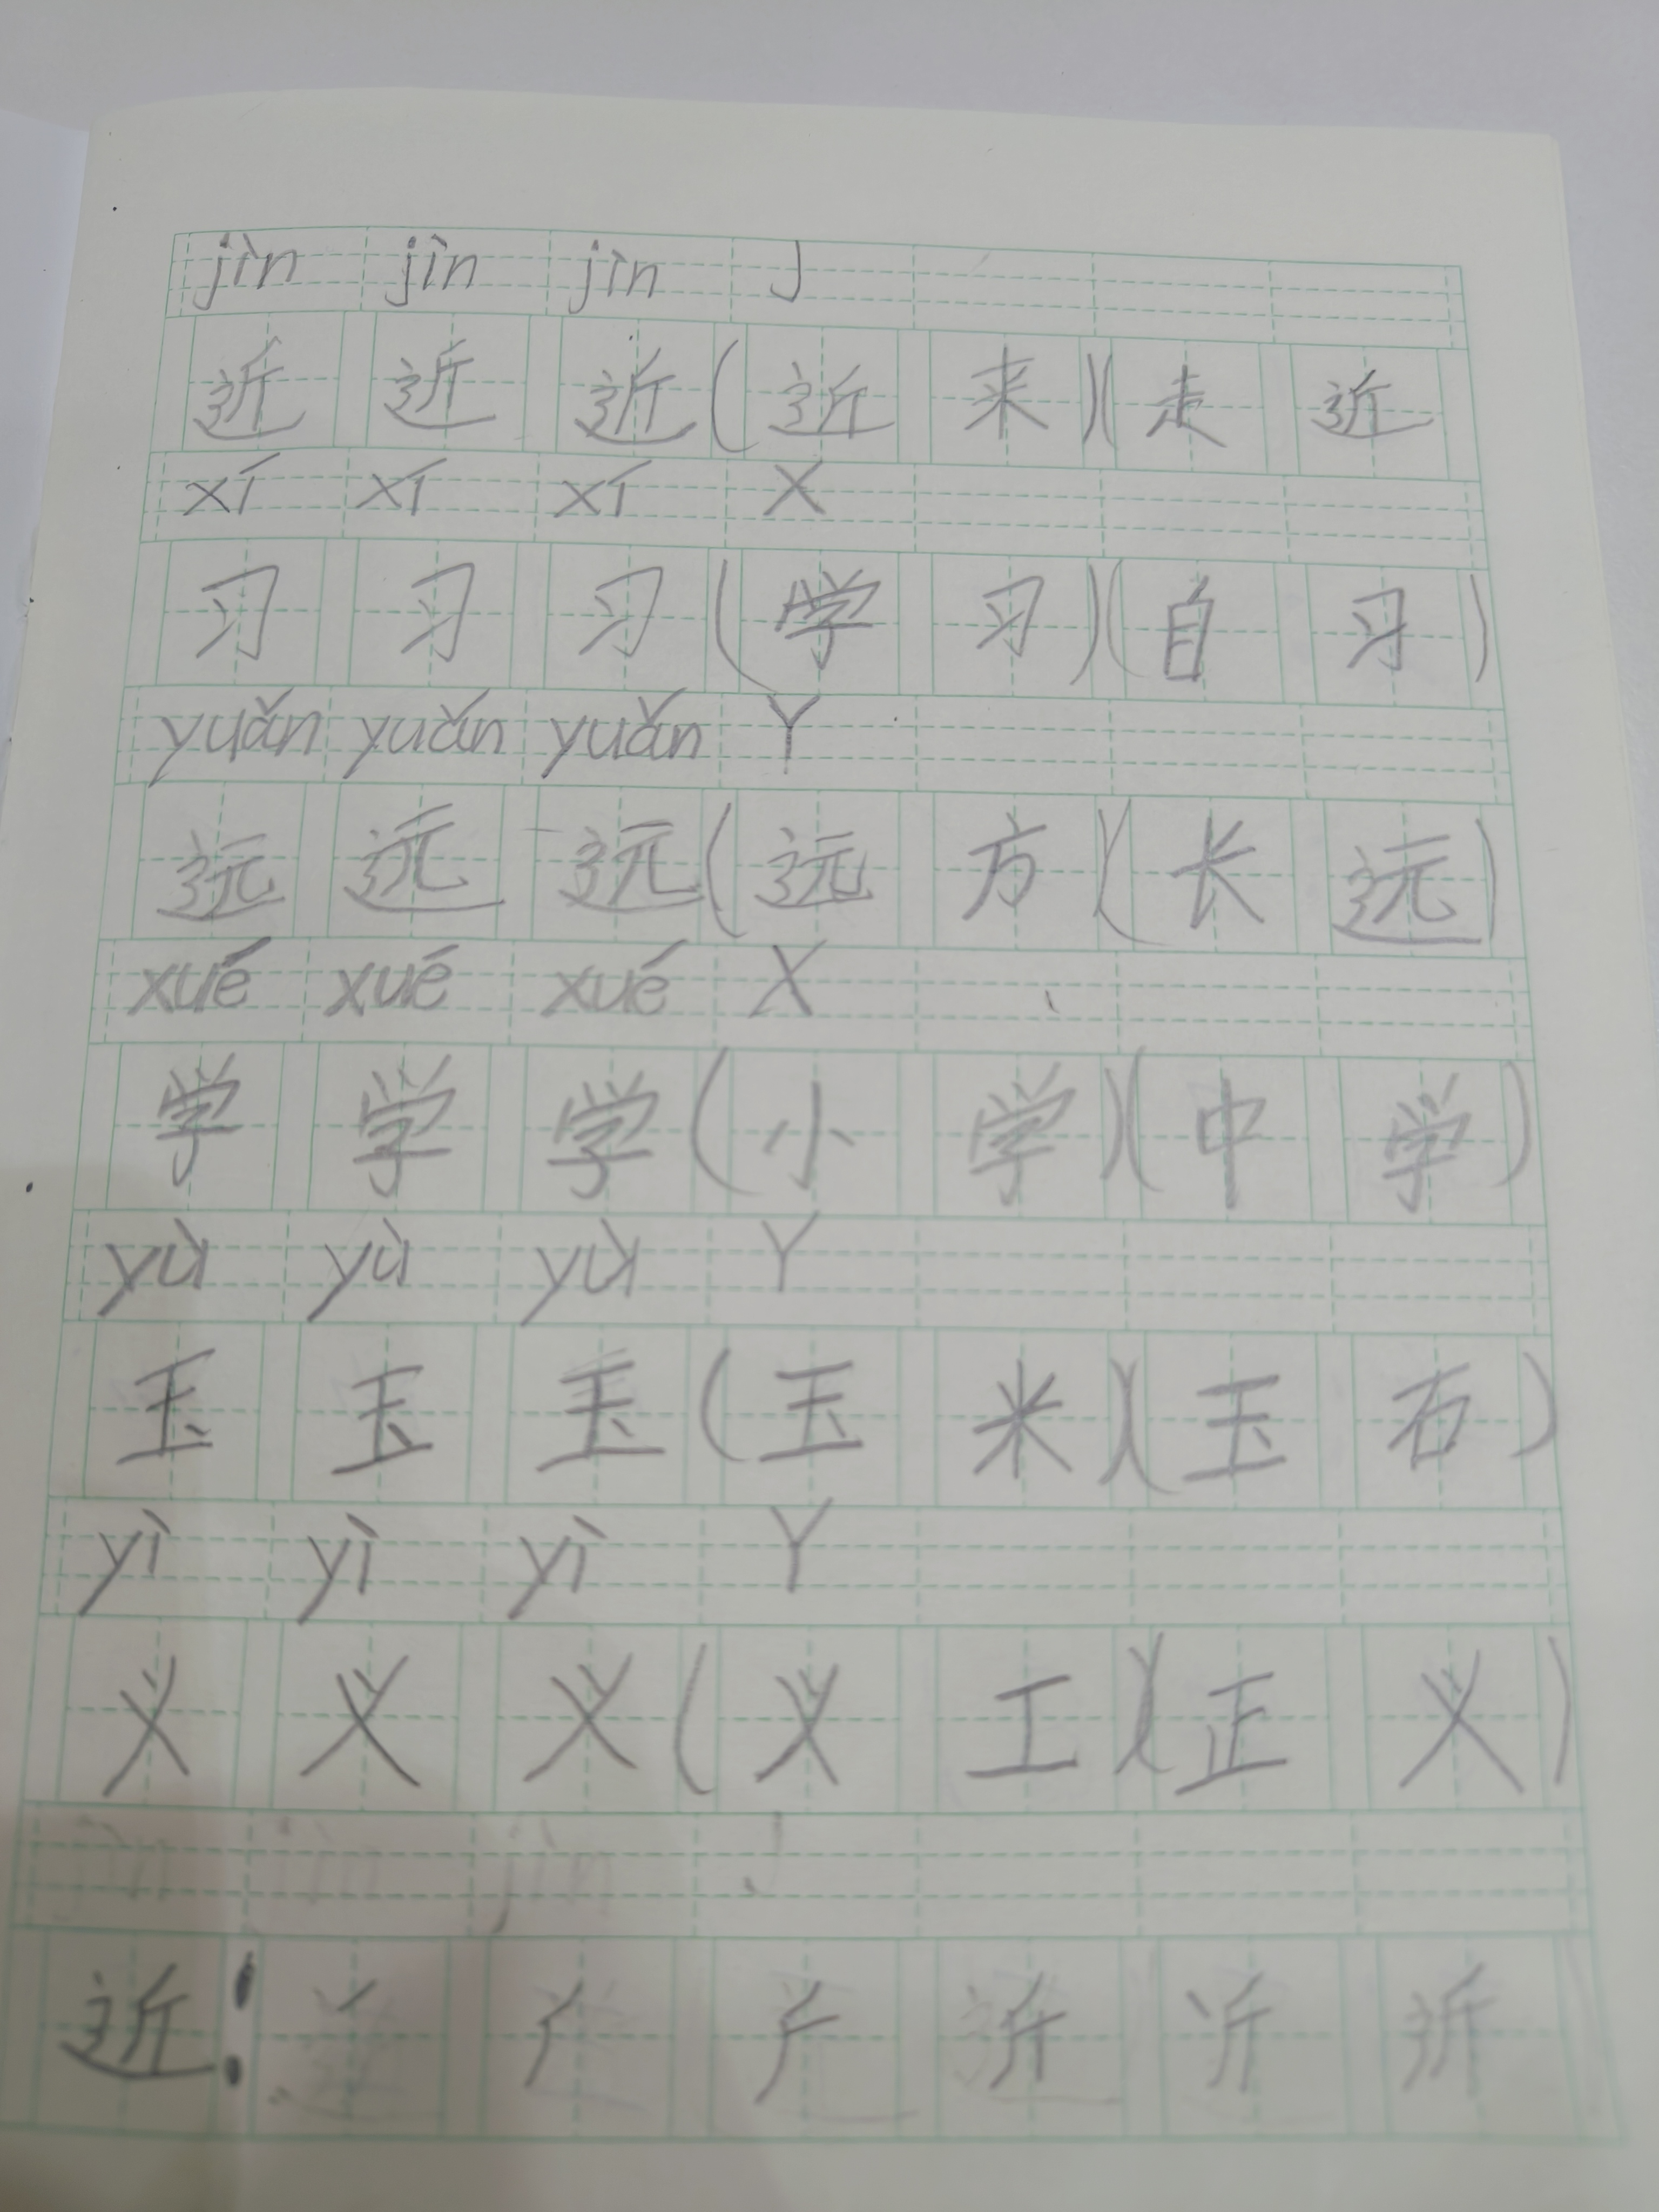 jìn jìn jìn J
近 近 近 (近 来)(走 近
xí xí xí X
习 习 习 (学 习)(自 习)
yuǎn yuǎn yuǎn Y
远 远 远 (远 方)(长 远)
xué xué xué X
学 学 学 (小 学)(中 学)
yù yù yù Y
玉 玉 玉 (玉 米)(玉 石)
yì yì yì Y
义 义 义 (义 工)(正 义)
jìn jìn jìn J
近: